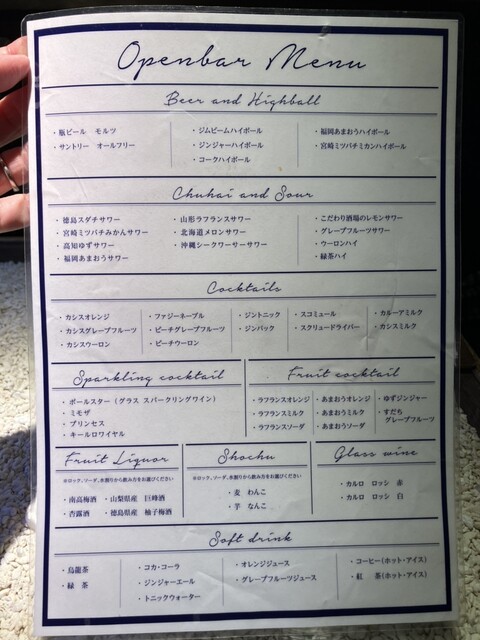 Openbar Menu
Beer and Highball
・瓶ビール　モルツ
・サントリー　オールフリー
・ジムビームハイボール
・ジンジャーハイボール
・コークハイボール
・福岡あまおうハイボール
・宮崎ミツバチミカンハイボール
Chuhai and Sour
・徳島スダチサワー
・宮崎ミツバチみかんサワー
・高知ゆずサワー
・福岡あまおうサワー
・山形ラフランスサワー
・北海道メロンサワー
・沖縄シークワーサーサワー
・こだわり酒場のレモンサワー
・グレープフルーツサワー
・ウーロンハイ
・緑茶ハイ
Cocktails
・カシスオレンジ
・カシスグレープフルーツ
・カシスウーロン
・ファジーネーブル
・ピーチグレープフルーツ
・ピーチウーロン
・ジントニック
・ジンバック
・スコミュール
・スクリュードライバー
・カルーアミルク
・カシスミルク
Sparkling cocktail
・ポールスター（グラス スパークリングワイン）
・ミモザ
・プリンセス
・キールロワイヤル
Fruit cocktail
・ラフランスオレンジ
・ラフランスミルク
・ラフランスソーダ
・あまおうオレンジ
・あまおうミルク
・あまおうソーダ
・ゆずジンジャー
・すだち
グレープフルーツ
Fruit Liquor
※ロック、ソーダ、水割りから飲み方をお選びください
・南高梅酒
・杏露酒
・山梨県産　巨峰酒
・徳島県産　柚子梅酒
Shochu
※ロック、ソーダ、水割りから飲み方をお選びください
・麦　わんこ
・芋　なんこ
Glass wine
・カルロ　ロッシ　赤
・カルロ　ロッシ　白
Soft drink
・烏龍茶
・緑　茶
・コカ・コーラ
・ジンジャーエール
・トニックウォーター
・オレンジジュース
・グレープフルーツジュース
・コーヒー（ホット・アイス）
・紅　茶（ホット・アイス）